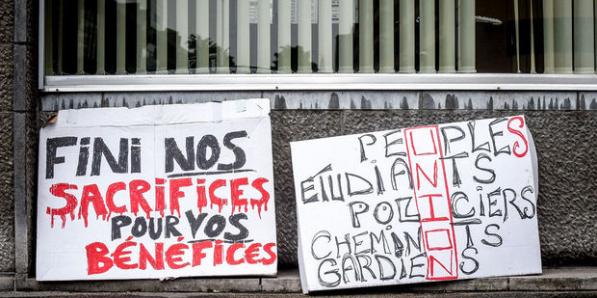 FINI NOS
SACRIFICES
POUR VOS
BÉNÉFICES
PEUPLES
ÉTUDIANTS
POLICIERS
CHEMINOTS
GARDIENS